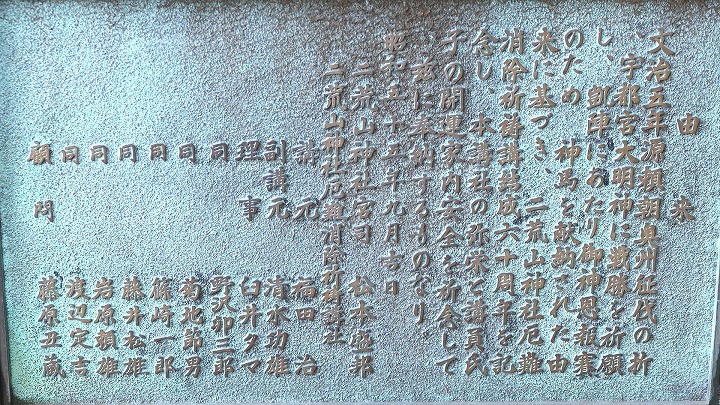 由来
文治五年源頼朝奥州征伐の折
、宇都宮大明神に戦勝を祈願
し、凱陣にあたり御神恩報賽
のため　神馬を献納された由
来に基づき、二荒山神社厄難
消除祈祷講結成六十周年を記
念し、本講社の弥栄と講員氏
子の開運家内安全を祈念して
、茲に奉納するものなり。
昭和五十五年九月吉日
二荒山神社宮司　松本盛邦
二荒山神社厄難消除祈祷講社
講元　福田　治
副講元　清水功雄
理事　臼井タマ
同　野沢卯三郎
同　菊地節男
同　篠崎一郎
同　藤井松雄
同　岩原頼雄
同　渡辺定吉
顧問　藤原丑蔵